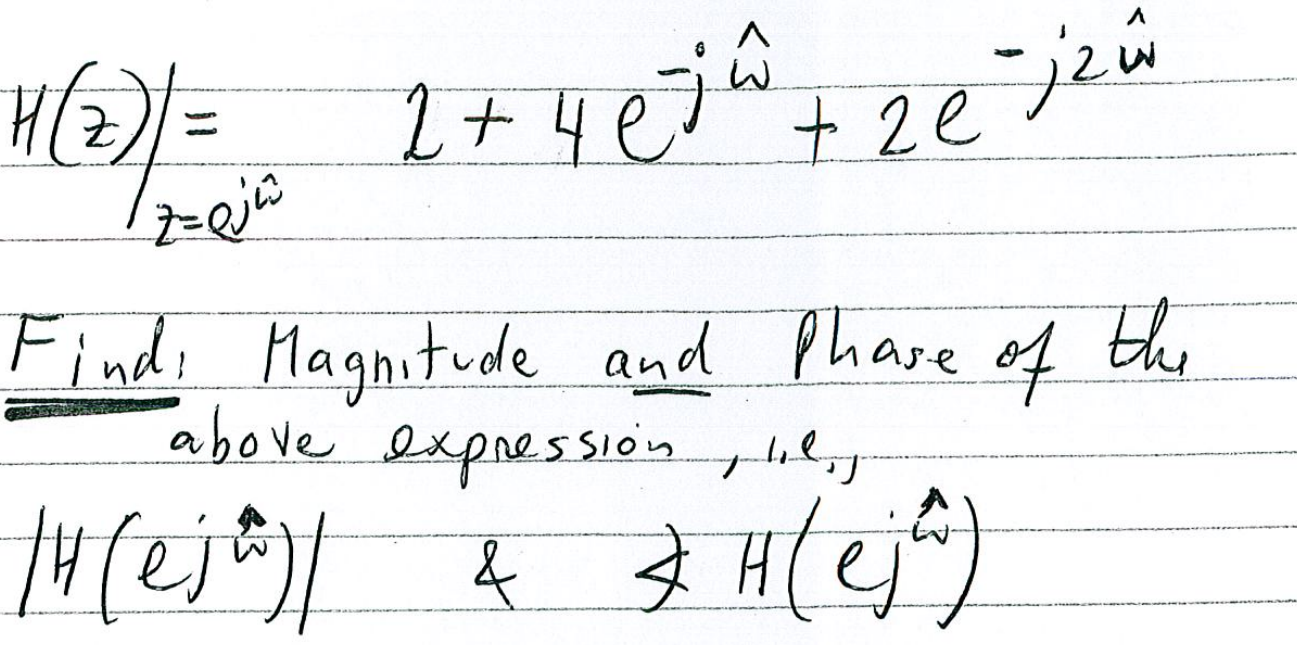 H(z)|z=e^jω̂ = 2 + 4e^-jω̂ + 2e^-j2ω̂
Find: Magnitude and Phase of the
above expression, i.e.,
|H(e^jω̂)| & ∢ H(e^jω̂)